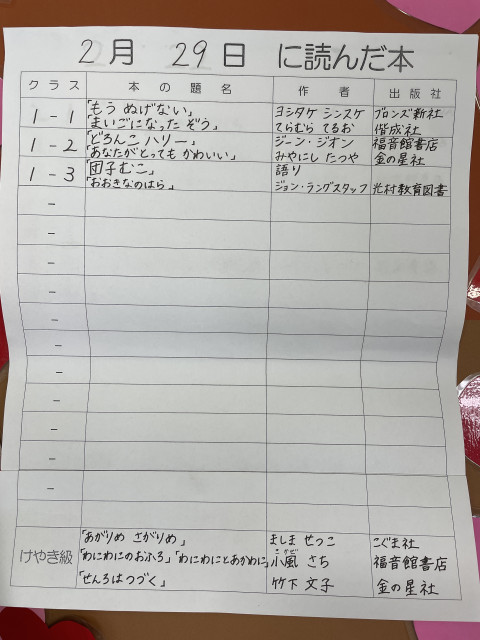 2月 29日 に読んだ本
クラス 本の題名 作者 出版社
1-1 「もう ぬげない」 ヨシタケ シンスケ ブロンズ新社
「まいごになった ぞう」 てらむら てるお 偕成社
1-2 「どろんこ ハリー」 ジーン・ジオン 福音館書店
「あなたがとっても かわいい」 みやにし たつや 金の星社
1-3 「団子むこ」 語り
「おおきなのはら」 ジョン・ラングスタッフ 光村教育図書
-
-
-
-
-
-
-
-
-
-
-
「あがりめ さがりめ」 ましま せつこ こぐま社
けやき級 「わにわにのおふろ」「わにわにとあかわに」 小風 こかぜ さち 福音館書店
「せんろはつづく」 竹下 文子 金の星社